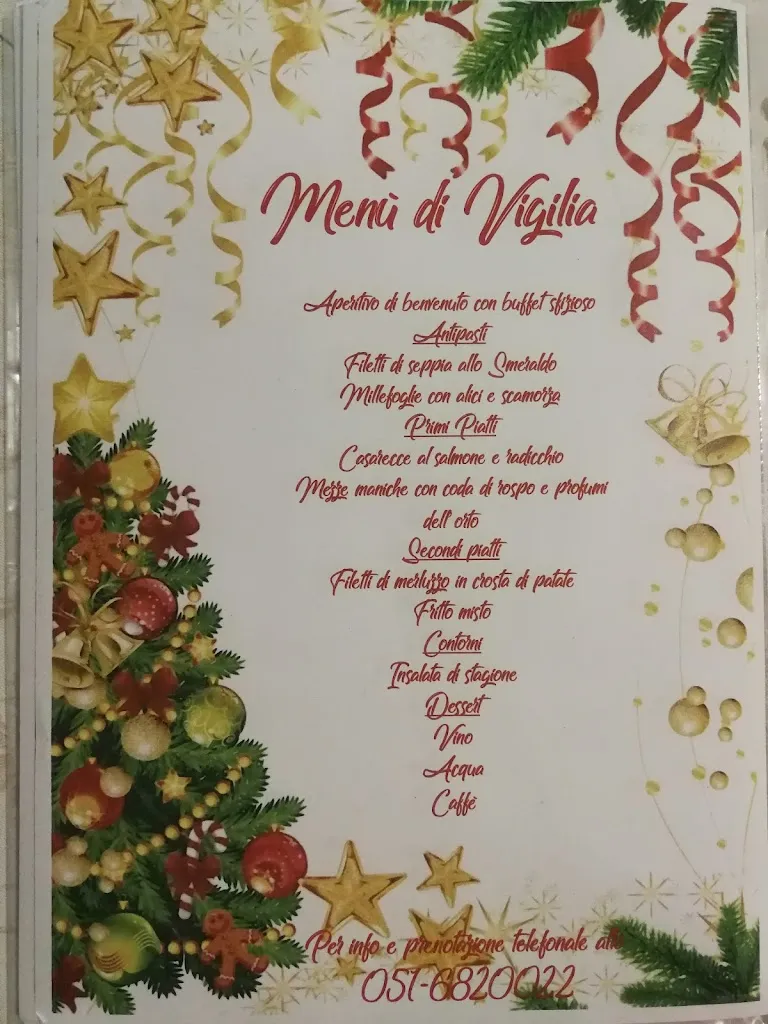 Menù di Vigilia
Aperitivo di benvenuto con buffet sfizioso
Antipasti
Filetti di seppia allo Smeraldo
Millefoglie con alici e scamorza
Primi Piatti
Casarecce al salmone e radicchio
Mezze maniche con coda di rospo e profumi
dell'orto
Secondi piatti
Filetti di merluzzo in crosta di patate
Fritto misto
Contorni
Insalata di stagione
Dessert
Vino
Acqua
Caffè
Per info e prenotazione telefonale allo
051-6820022